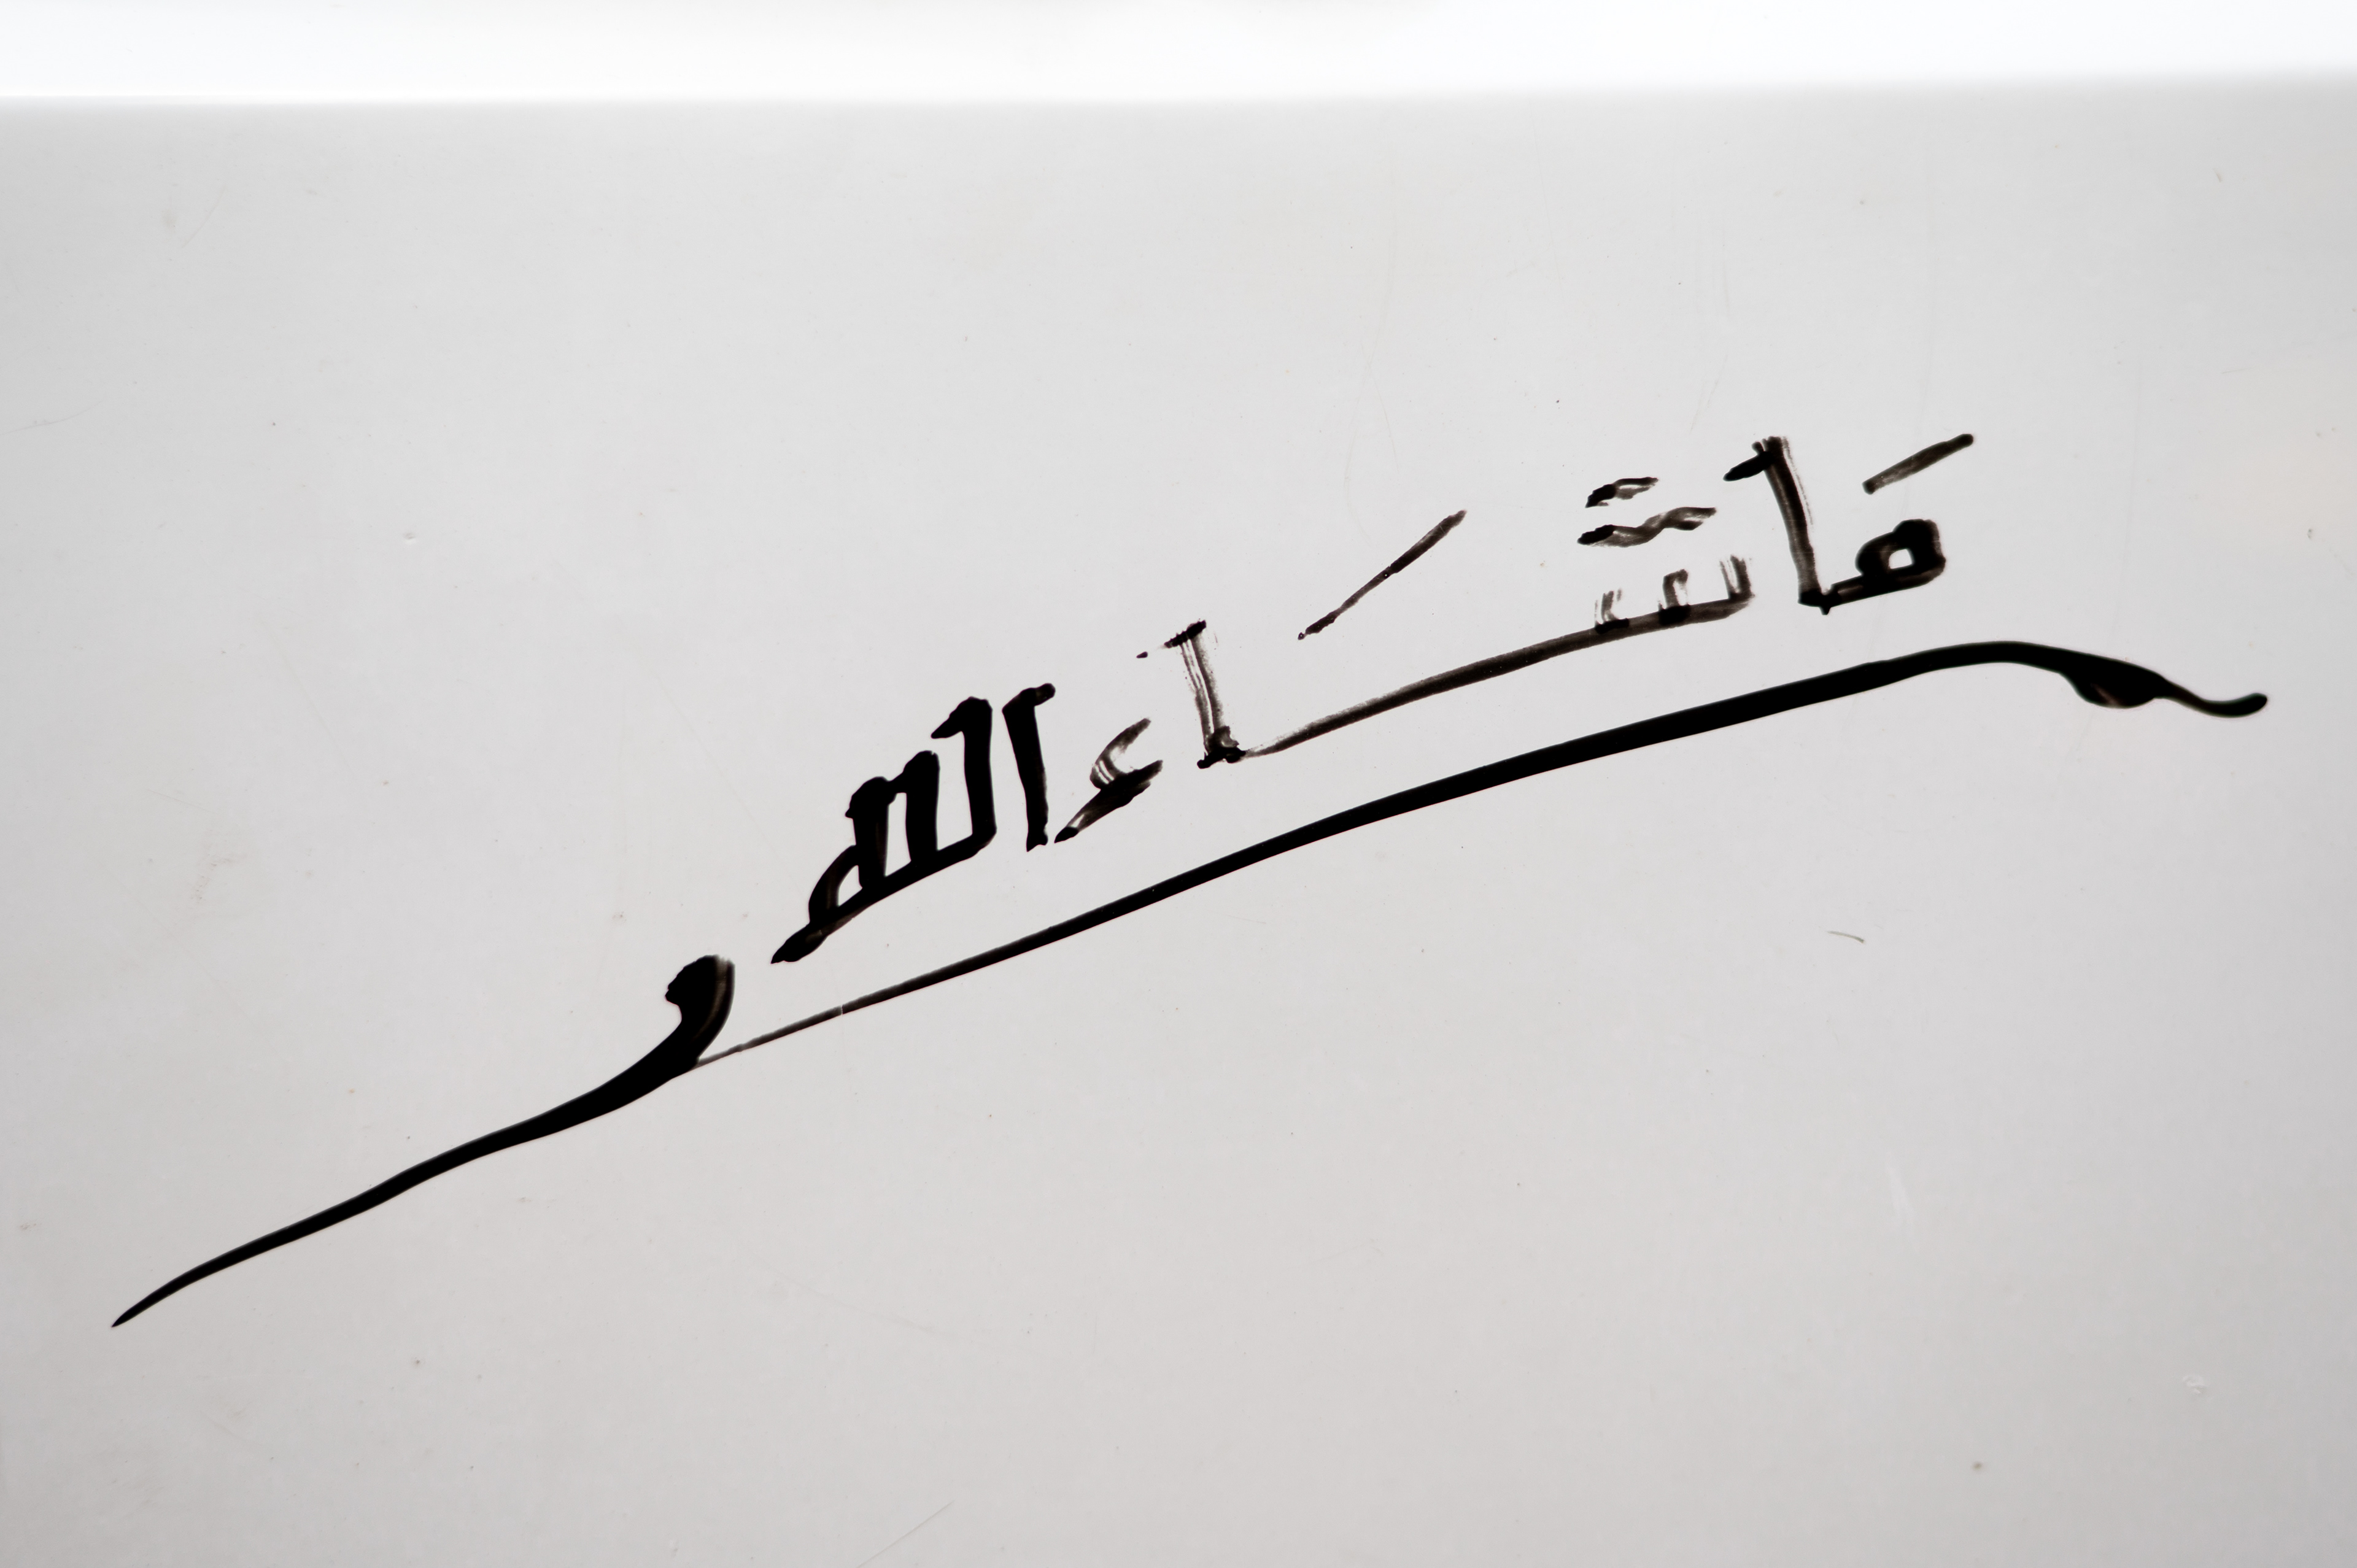 مَا شَاء الله